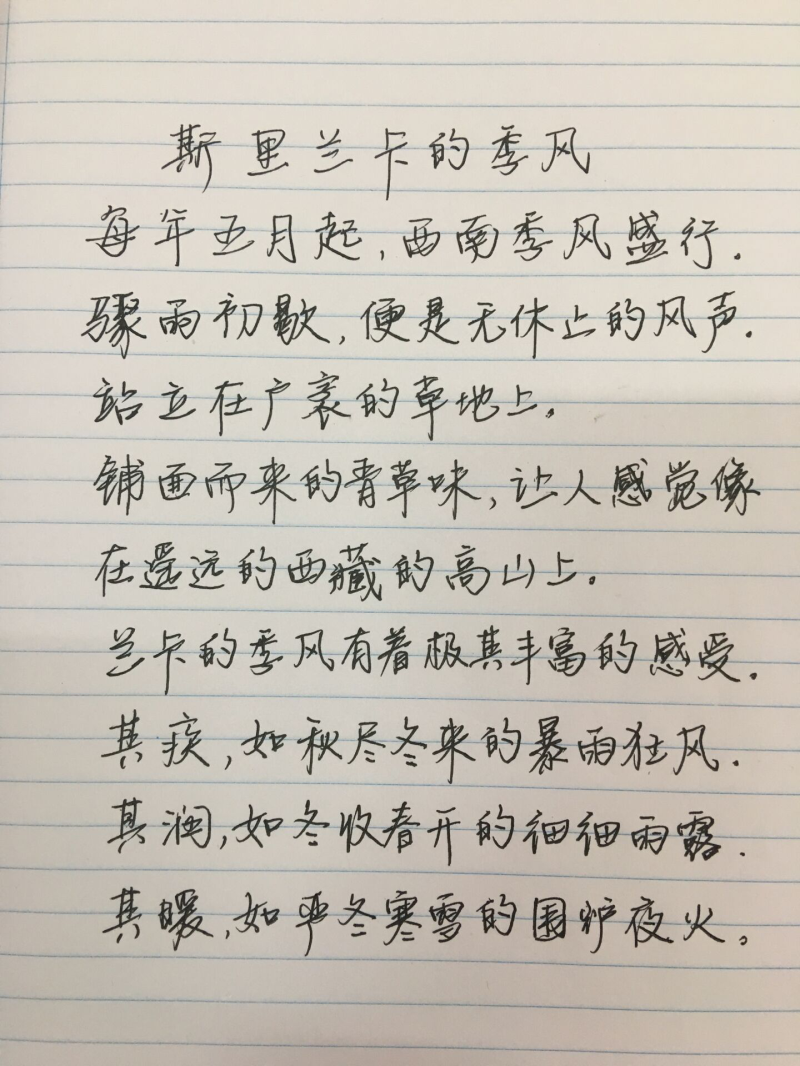 斯里兰卡的季风
每年五月起,西南季风盛行.
骤雨初歇,便是无休止的风声.
站立在广袤的草地上。
铺面而来的青草味,让人感觉像
在遥远的西藏的高山上。
兰卡的季风有着极其丰富的感受.
其疾,如秋尽冬来的暴雨狂风.
其润,如冬收春开的细细雨露.
其暖,如严冬寒雪的围炉夜火。